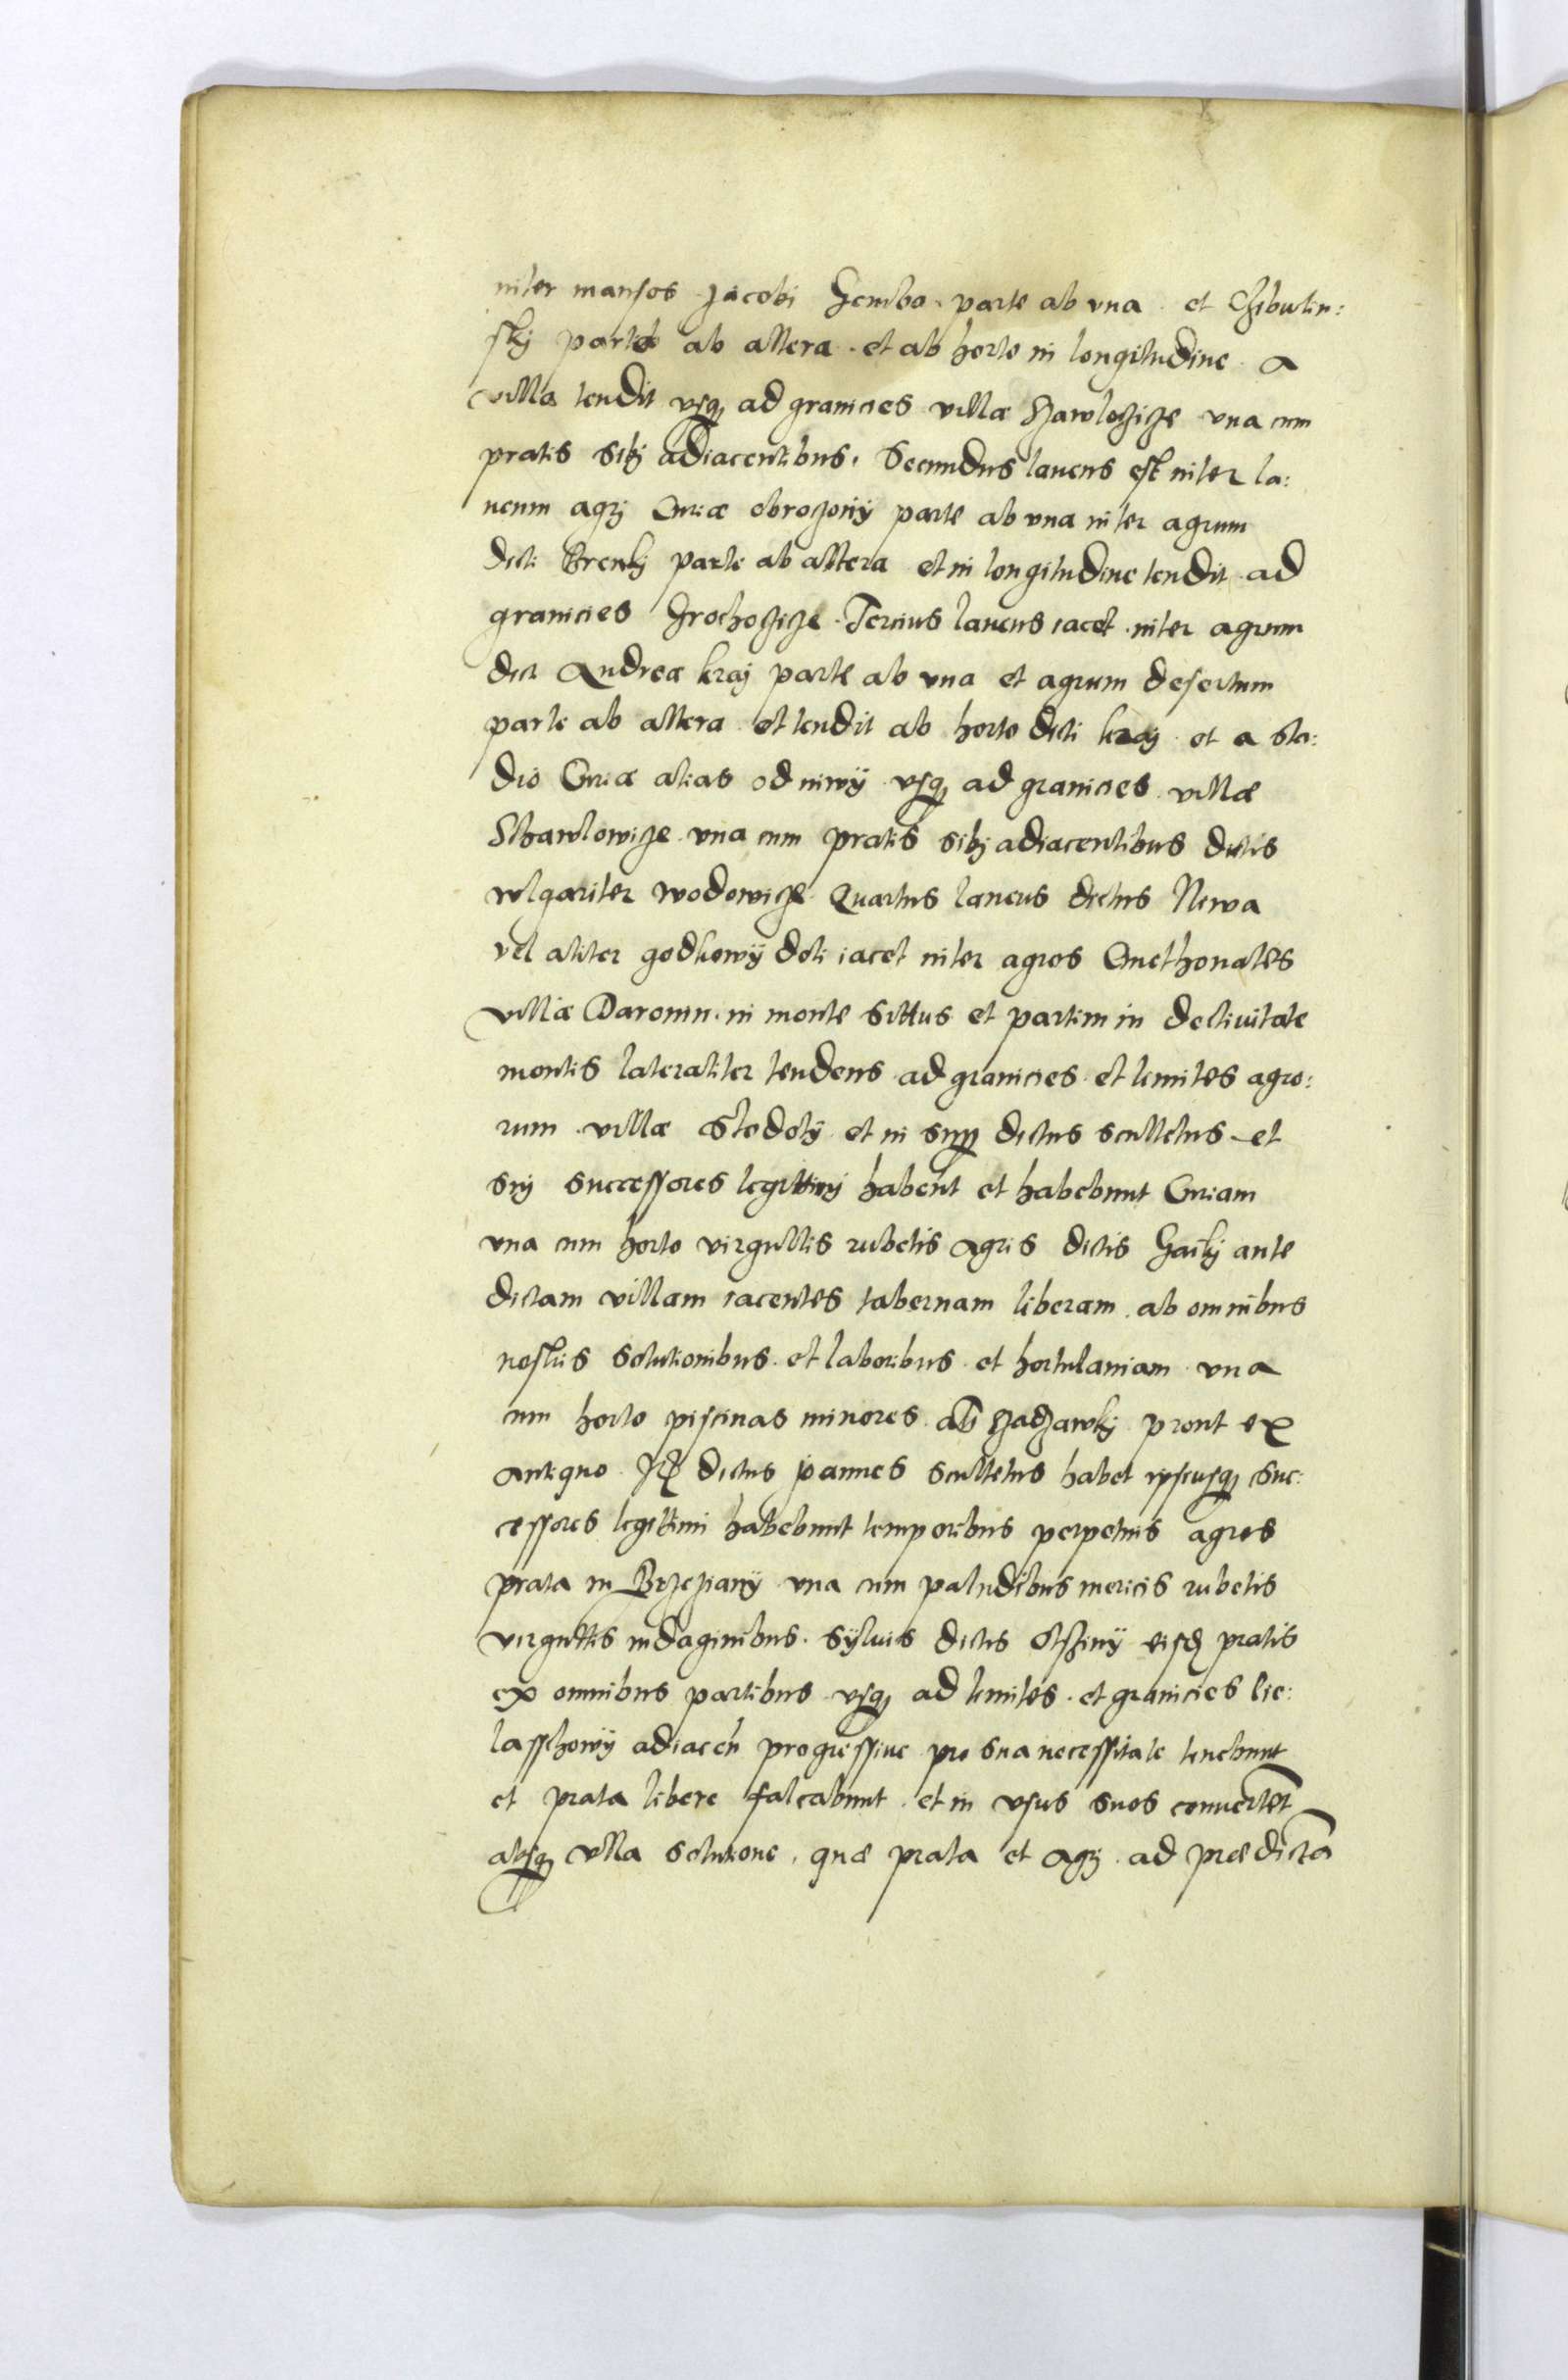 inter mansos Jacobi Gembo. parte ab una. et Chibutin:
skij partæ ab altera. et ab horto in longitudine. a
villa tendit usq₃ ad granicies villæ Hawloczicze una cum
pratis sibj adiacentibus. Secundus laneus est inter la:
neum agrj Curiæ obroczonÿ parte ab una inter agrum
dicti Brenkj parte ab altera et in longitudine tendit ad
granicies Grochoczicze. Tercius laneus iacet inter agrum
dicti Andreæ kraj parte ab una et agrum desertum
parte ab altera et tendit ab horto dicti kraj et a sta:
dio Curiæ alias od niwÿ usq₃ ad granicies villæ
Skawlowicze una cum pratis sibj adiacentibus dictis
wlgariter wodowicze Quartus laneus dictus Niwa
vel aliter godkowÿ doli iacet inter agros Cmethonales
villæ Daromin. in monte sittus et partim in declivitate
montis lateraliter tendens ad granicies et limites agro:
rum villæ Stodolÿ et in sup dictus scultetus et
sui successores legittimj habent et habebunt Curiam
una cum horto virgultis rubetis Agris dictis Gaikj ante
dictam villam iacentes tabernam liberam ab omnibus
nostris solutionibus et laboribus et hortulaniam una
cum horto piscinas minores als Sadzawkj pront ex
antiquo. Itꝫ dictus joannes scultetus habet ipseusq₃ suc:
cessores legittimi habebunt temporibus perpetuis agros
prata in Brzezianÿ una cum paludibus mericis rubetis
virgultis indaginibus. Sÿlvis dictis Olszinÿ eisdꝫ pratis
ex omnibus partibus usq₃ ad limites et granicies lie:
lasshowÿ adiacen progressive pro sua necessitate tenebunt
et prata libere falcabunt et in usus suos convertet
absq₃ ulla solutione, quæ prata et agrj ad prædicta